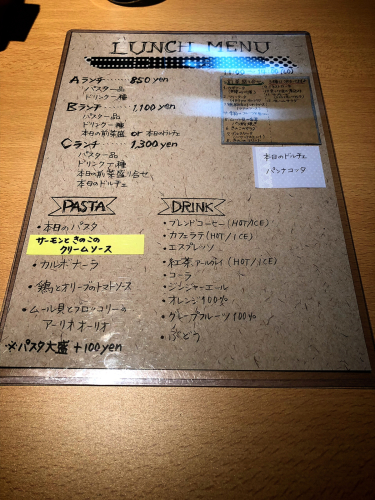 LUNCH MENU
Aランチ ······ 850yen
パスタ一品
ドリンク一種
Bランチ ······ 1,100yen
パスタ一品
ドリンク一種
本日の前菜盛 or 本日のドルチェ
Cランチ ······ 1,300yen
パスタ一品
ドリンク一種
本日の前菜盛り合せ
本日のドルチェ
本日のドルチェ
パンナコッタ
PASTA
・本日のパスタ
サーモンときのこの
クリームソース
・カルボナーラ
・鶏とオリーブのトマトソース
・ムール貝とブロッコリーの
アーリオオーリオ
※パスタ大盛 +100yen
DRINK
・ブレンドコーヒー(HOT/ICE)
・カフェラテ(HOT/ICE)
・エスプレッソ
・紅茶 アールグレイ(HOT/ICE)
・コーラ
・ジンジャーエール
・オレンジ100%
・グレープフルーツ100%
・ぶどう